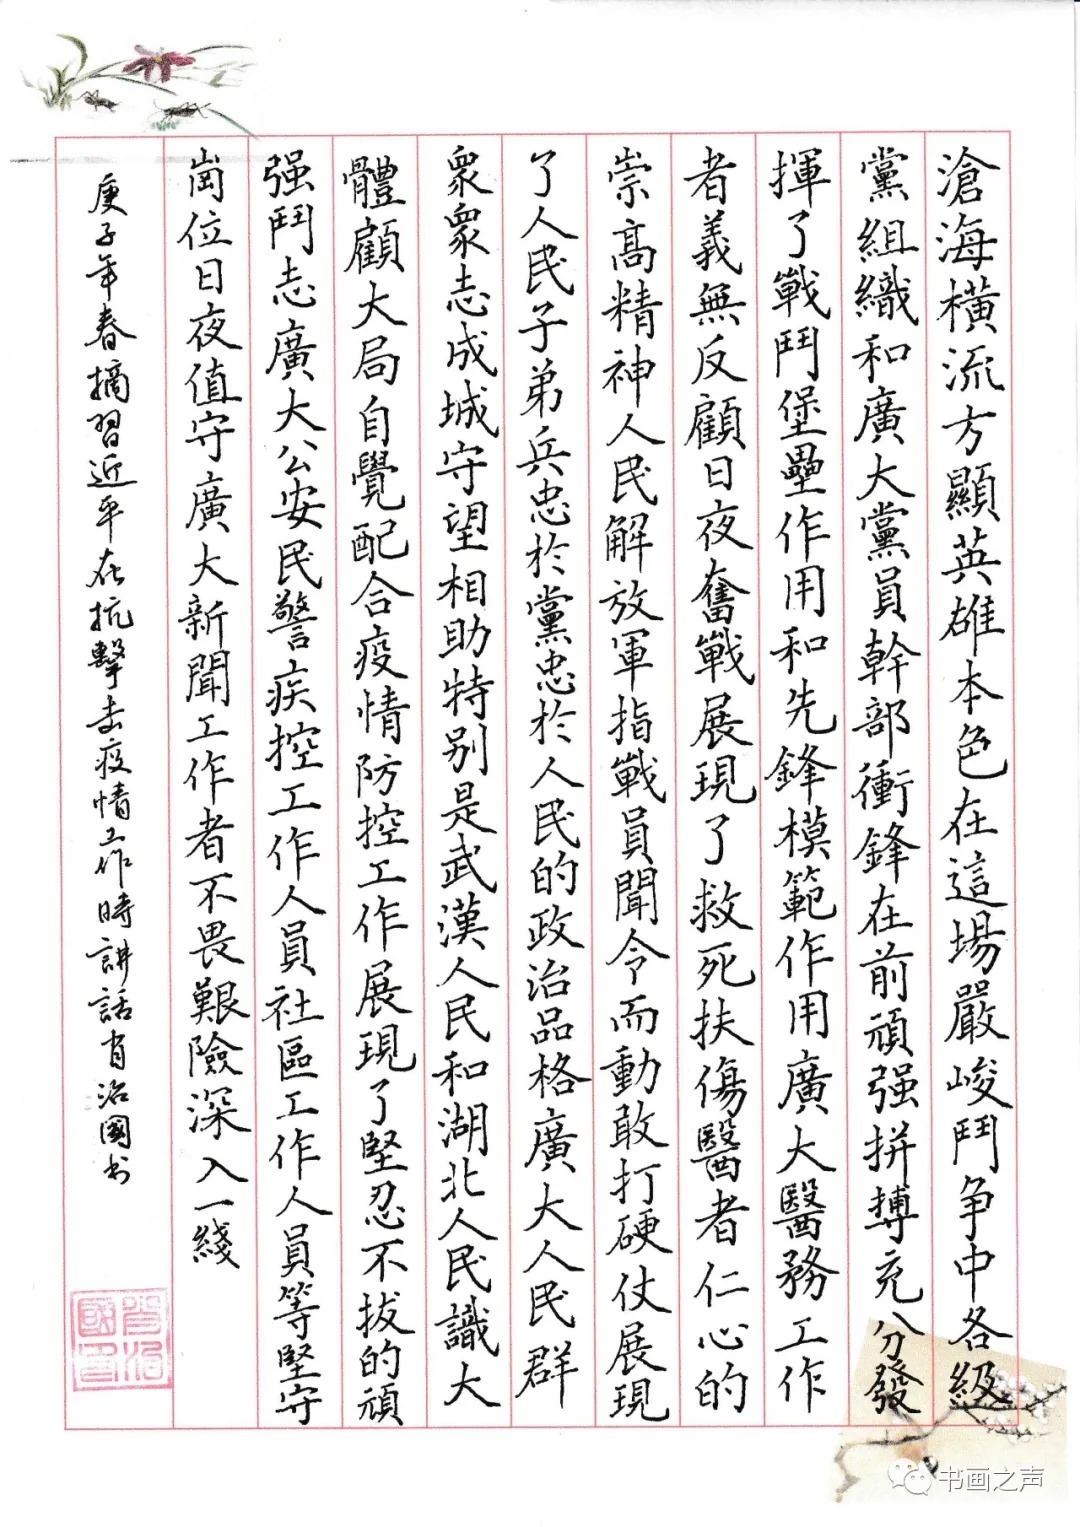 滄海橫流方顯英雄本色在這場嚴峻鬥争中各級
黨組織和廣大黨員幹部衝鋒在前頑强拼搏充分發
揮了戰鬥堡壘作用和先鋒模範作用廣大醫務工作
者義無反顧日夜奮戰展現了救死扶傷醫者仁心的
崇高精神人民解放軍指戰員聞令而動敢打硬仗展現
了人民子弟兵忠於黨忠於人民的政治品格廣大人民群
衆衆志成城守望相助特别是武漢人民和湖北人民識大
體顧大局自覺配合疫情防控工作展現了堅忍不拔的頑
强鬥志廣大公安民警疾控工作人員社區工作人員等堅守
崗位日夜值守廣大新聞工作者不畏艱險深入一綫
庚子年春摘習近平在抗擊疫情工作時講話肖治國书
肖治國印
书画之声